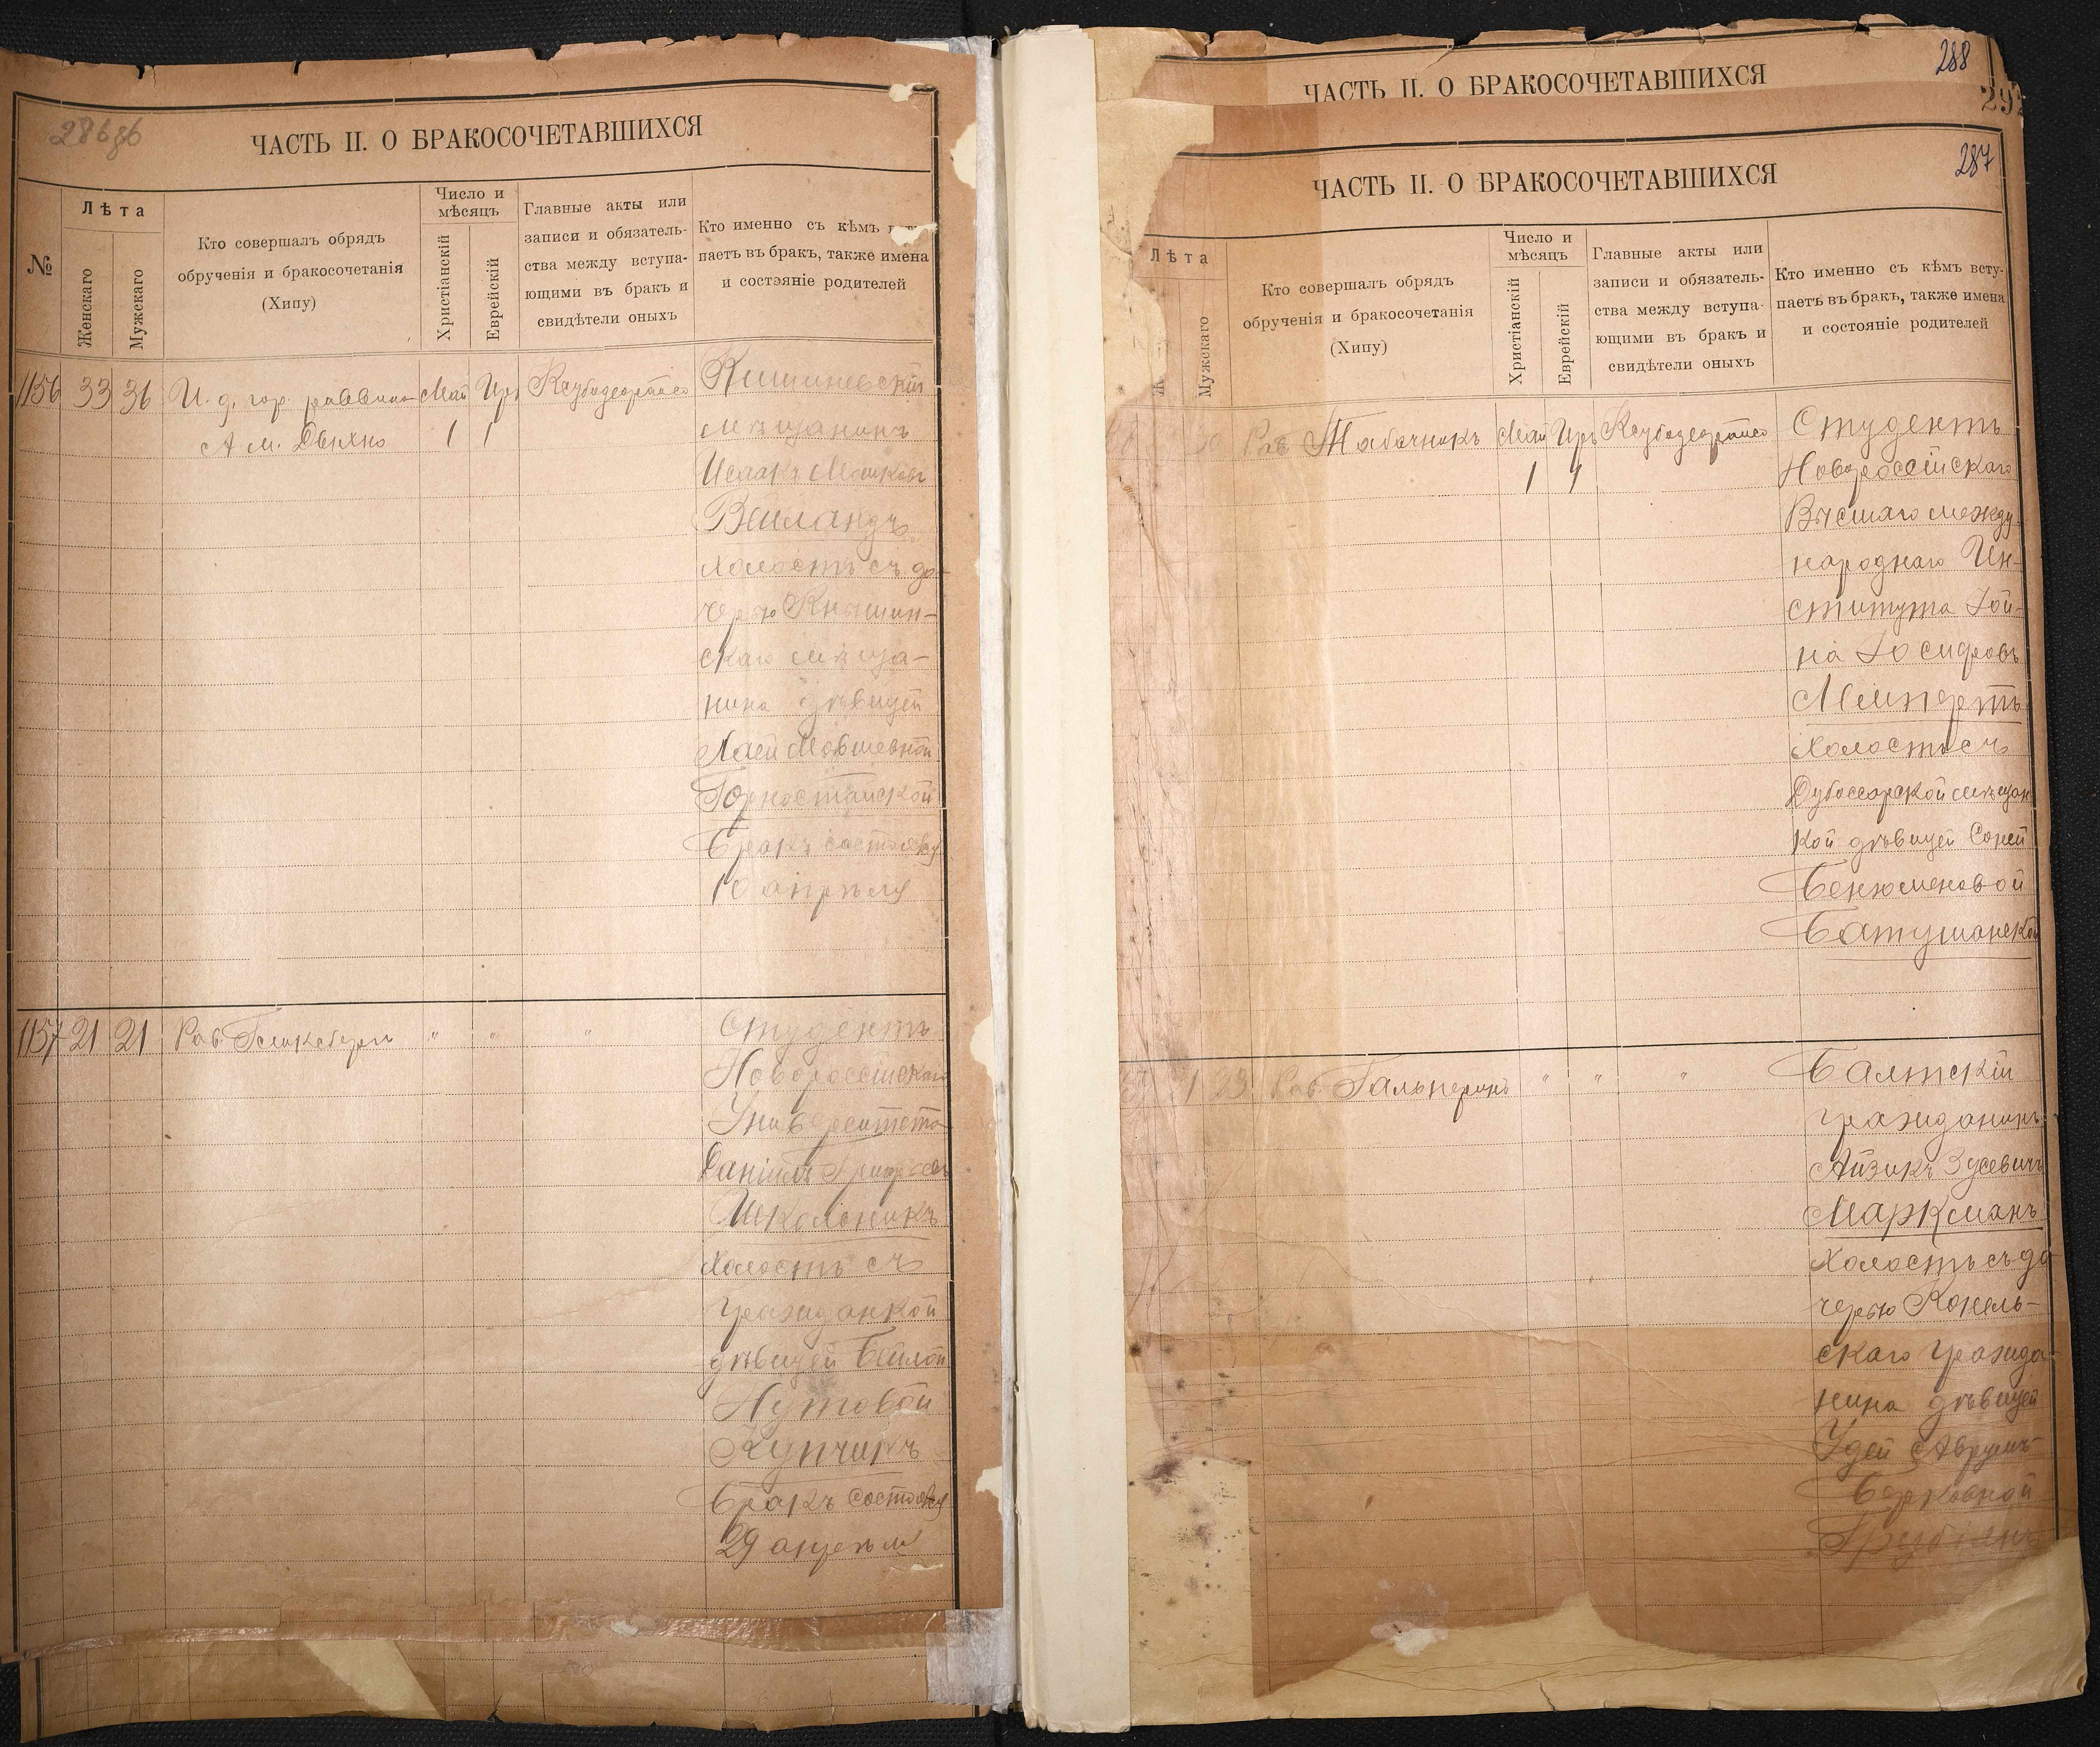 286об
ЧАСТЬ II. О БРАКОСОЧЕТАВШИХСЯ
№
Лѣта
Женскаго
Мужскаго
Кто совершалъ обрядъ
обрученія и бракосочетанія
(Хипу)
Число и
мѣсяцъ
Христіанскій
Еврейскій
Главные акты или
записи и обязатель-
ства между вступа-
ющими въ бракъ и
свидѣтели оныхъ
Кто именно съ кѣмъ
паетъ въ бракъ, также имена
и состояніе родителей
1156 33 36 И. д. гор. раввина Май Иръ
А. М. 1 1
Кишиневскій
мѣщанинъ
Исаакъ Мошковъ
Вейландъ
холостъ съ до-
черью Кнышин-
скаго мѣща-
нина дѣвицей
Хаей Мовшевной
Горностайской
Бракъ состоялся
10 апрѣля
1157 21 21 Рав. " " "
Студентъ
Новороссійскаго
Университета
Даніилъ
Школьникъ
холостъ съ
гражданкой
дѣвицей Бейлой
Нутовой
Купчикъ
Бракъ состоялся
29 апрѣля
288
ЧАСТЬ II. О БРАКОСОЧЕТАВШИХСЯ
287
ЧАСТЬ II. О БРАКОСОЧЕТАВШИХСЯ
Лѣта
Мужскаго
Кто совершалъ обрядъ
обрученія и бракосочетанія
(Хипу)
Число и
мѣсяцъ
Христіанскій
Еврейскій
Главные акты или
записи и обязатель-
ства между вступа-
ющими въ бракъ и
свидѣтели оныхъ
Кто именно съ кѣмъ всту-
паетъ въ бракъ, также имена
и состояніе родителей
Рав. Табачникъ Май Иръ
1 1
Студентъ
Новороссійскаго
Высшаго между-
народнаго Ин-
ститута Іой-
на Іосифовъ
Мейнертъ
холостъ съ
Дубоссарской мѣщан
кой дѣвицей Соней
Бенюменовой
Батушанской
23 Рав. Гальперинъ " " "
Балтскій
гражданинъ
Айзикъ Зусевичъ
Маркманъ
холостъ съ до
черью Конель-
скаго гражда-
нина дѣвицей
Удей Аврумъ-
Берковной